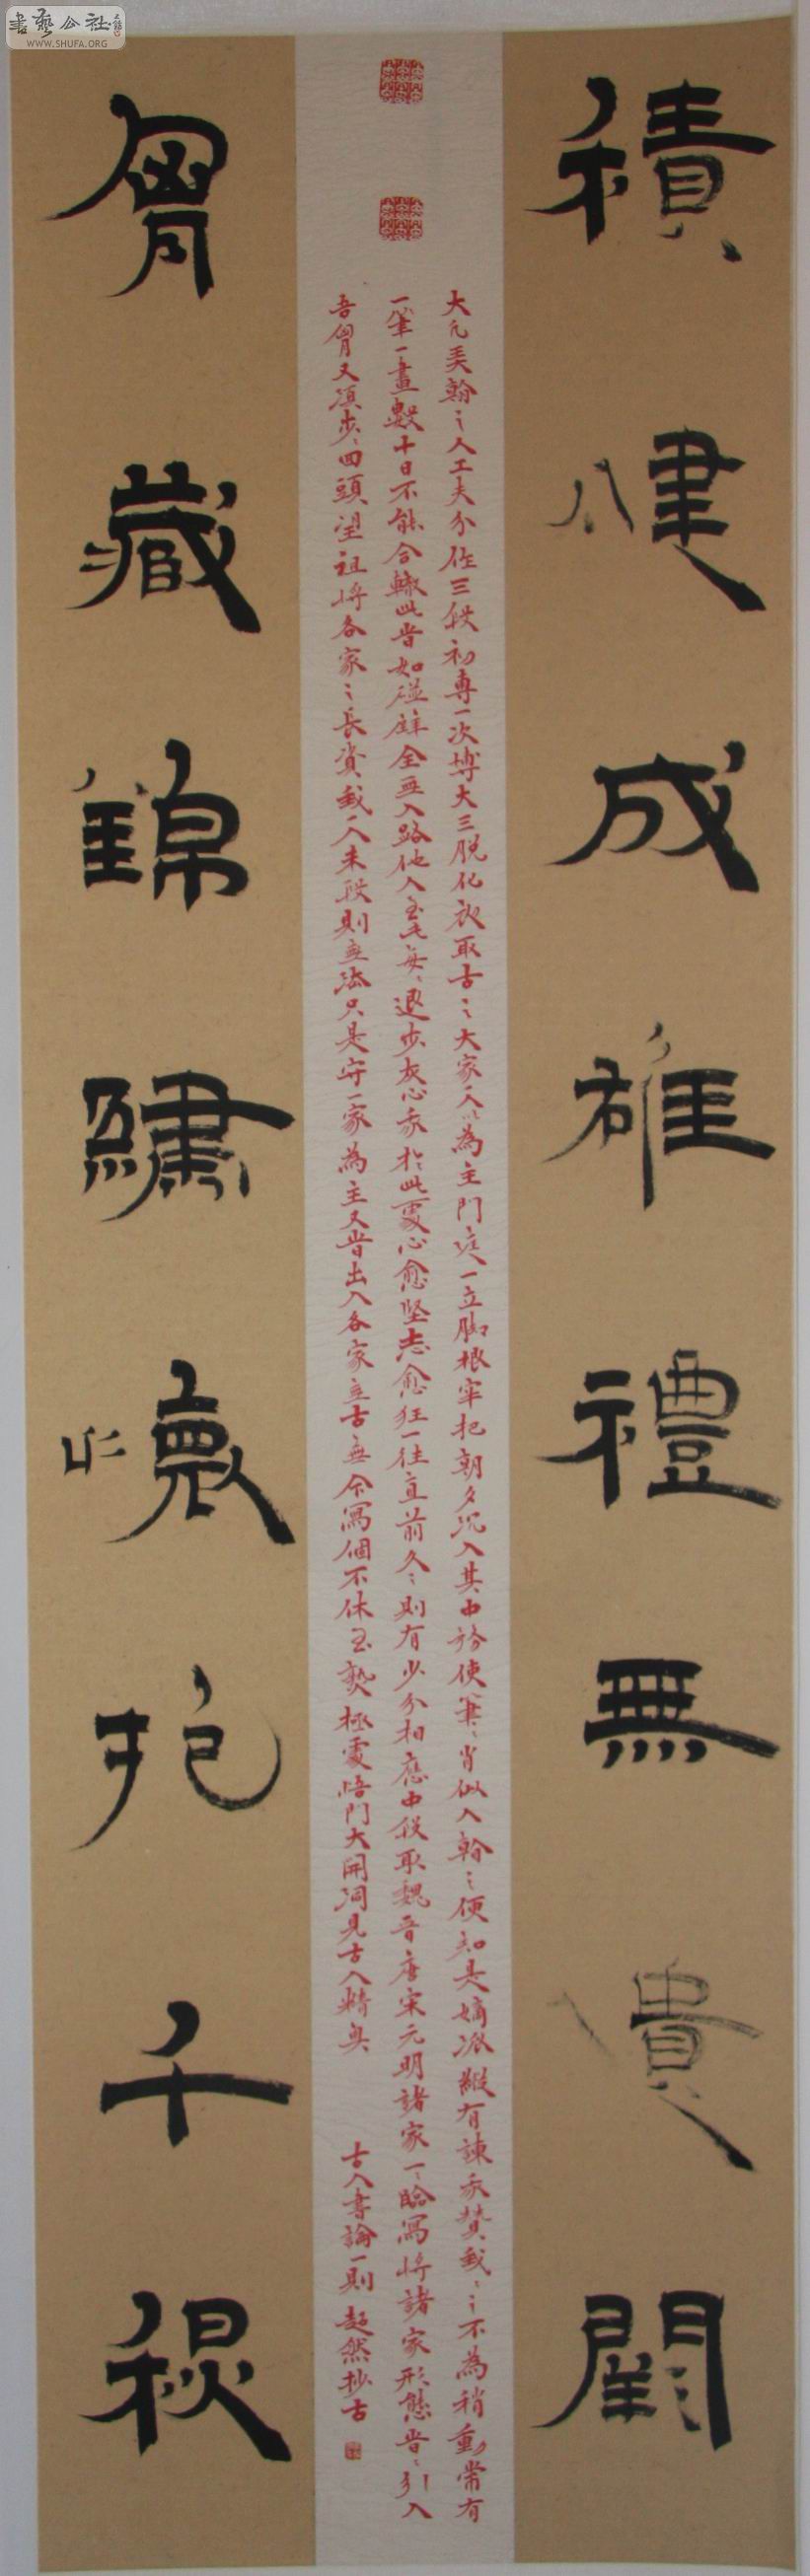 積健成雄禮無遺闕
胷藏錦繡懷抱千秋
大凡美翰之人工夫分作三段初專一次博大三脫化初取古之大家一人以為主門庭一立腳根牢把朝夕沉入其中務使筆筆肖似入翰之便知是嫡派縱有諫我贊我我之不為稍動常有
一筆一畫數十日不能合轍此皆如碰壁全無入路他人至此每每退步灰心我於此處心愈堅志愈狂一往直前久久則有少分相應中段取魏晉唐宋元明諸家一一臨寫將諸家形態皆皆引入
吾胷又須步步回頭望祖將各家之長資我一人末段則無法只是守一家為主又皆出入各家無古無今寫個不休至熟極處悟門大開洞見古人精奧
古人書論一則超然抄古
書藝公社
WWW.SHUFA.ORG